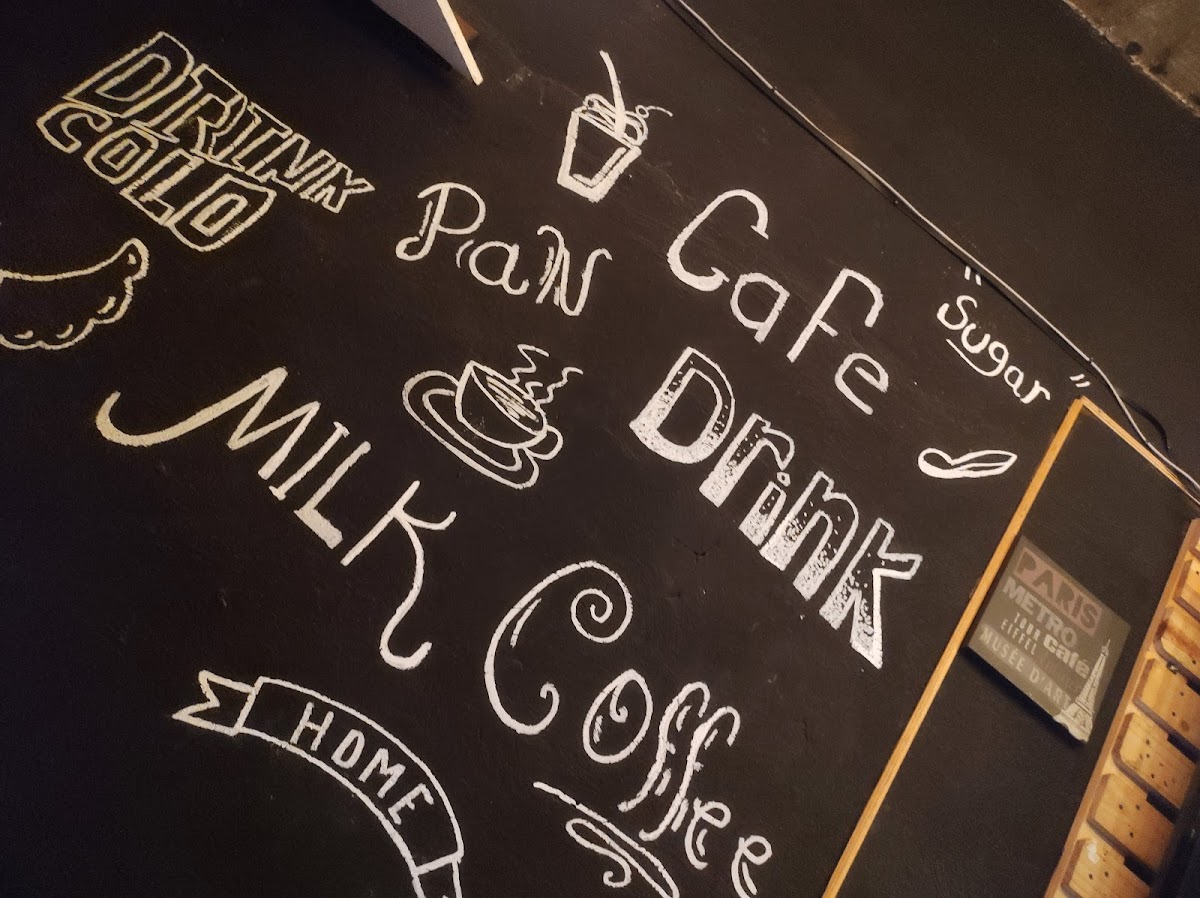 DRINK
COLD
PaN
Cafe
"Sugar"
Drink
MILK
Coffee
HOME
PARIS
METRO
TOUR
EIFFEL
Café
MUSÉE D'ART